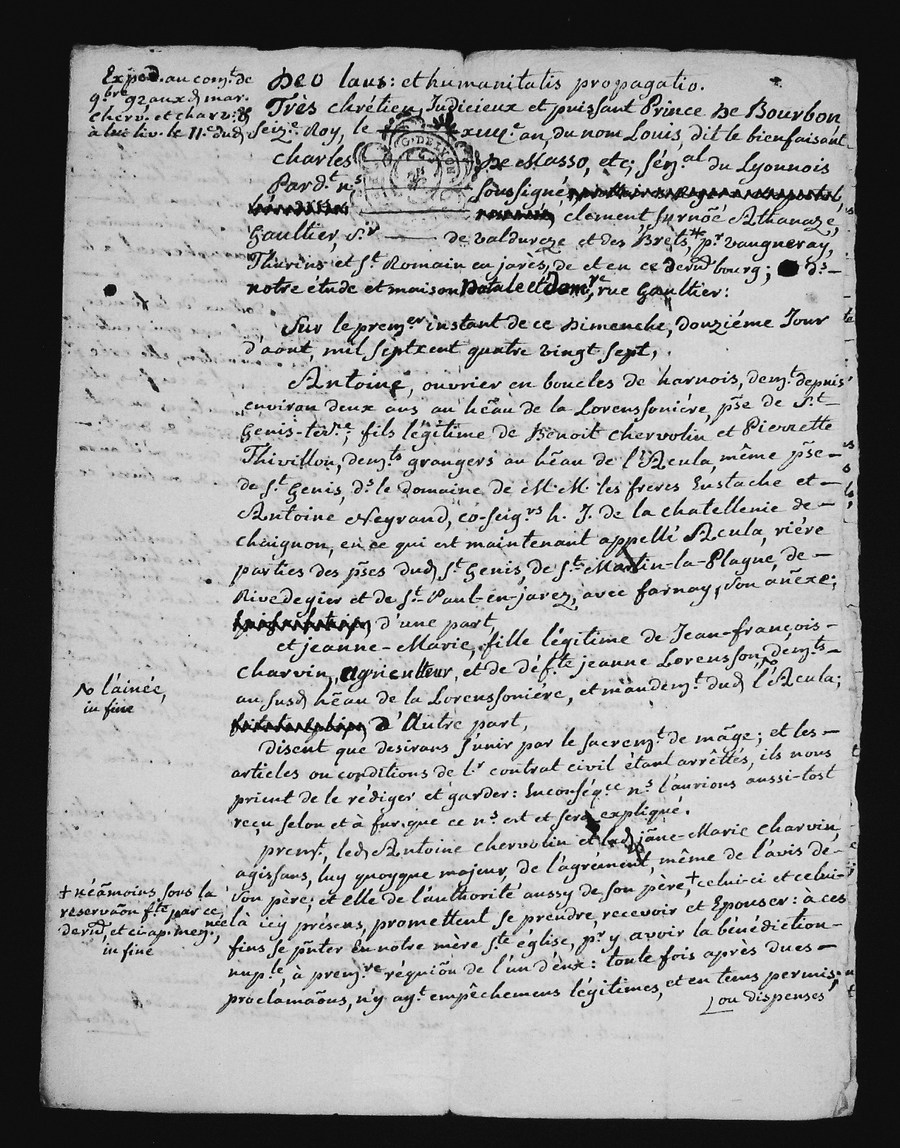 Expéd. au com.t de
9.bre 92 aux d. mar.
cherv. et charv. &
à lui liv. le 11.e dud.
Deo laus: et humanitatis propagatio.
Très chrétien, Judicieux et puissant Prince De Bourbon
Seiz.e Roy, le xiiij.e an, du nom Louis, dit le bienfaisant
Charles De Masso, etc; Sén.al du Lyonnois
G. DE LYON
Par d.t n.s Soussigné,
clement, surnoé Athanaze,
Gaultier S.r de Valdureze et des Brets, p.r Vaugneray,
Thurins et S.t Romain en jarès, de et en ce dernd bourg; d.s
notre etude et maison Natale et Dom.re, rue Gaultier:
Sur le prem.er instant de ce Dimenche, douziéme Jour
d'aout, mil Sept cent quatre vingt sept,
Antoine, ouvrier en boucles de harnois, dem.t depuis
environ deux ans au hãu de la Lorenssoniére, pse de S.t
Genis-ter.re; fils légitime de Benoit Chervolin et Pierrette
Thivillon, dem.ts grangers au hãu de l'Acula, même pse
de S.t Genis, d.s le domaine de M. M. les freres Eustache et
Antoine Neyrand, co-seig.rs h. J. de la chatellenie de
Chaignon, en ce qui est maintenant appellé Acula, riére
parties des pses dud. S.t Genis, de S.t Martin-la-Plagne, de
Rivedegier et de S.t Paul-en-jarez, avec farnay, Son añexe;
d'une part,
et jeanne-Marie, fille légitime de Jean-françois
Charvin, agriculteur, et de déf.te jeanne Lorensson, dem.ts
au susd. hãu de la Lorenssoniére, et mandem.t dud. l'Acula;
l'ainée,
in fine
d'Autre part,
disent que desirans s'unir par le sacrem.t de mãge; et les
articles ou conditions de l.r contrat civil étant arrêttés, ils nous
prient de le rédiger et garder: En conséq.ce n.s l'aurions aussi-tost
reçu selon et à fur que ce n.s est et sera expliqué.
prem.t, led. Antoine chervolin et lad. jãne-Marie Charvin
agissans, luy quoyque majeur, de l'agrément, même de l'avis de
Son père; et elle de l'authorité aussy de son père,+ celui-ci et celui-
+ néãmoins, sous la
reservaõn f.te par ce
dernd, et ci ap. men.née
in fine
là icy présens, promettent se prendre, recevoir et Epouser: à ces
fins se pñter En notre mère S.te église, p.r y avoir la bénédiction
nup.le, à prem.re réquiõn de l'un d'eux: toute fois après ducs
proclamaõns, n'y ay.t empêchemens légitimes, et en tems permis,
ou dispenses